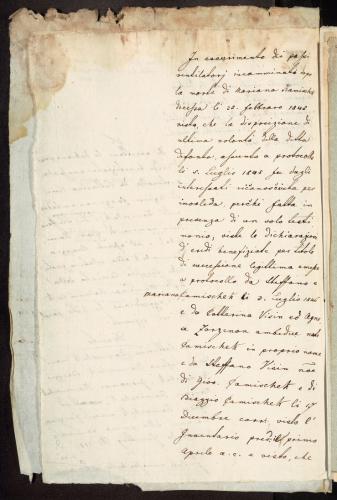 In esaurimento dei passi
ventilatorj incamminati dopo
la morte di Mariana Kamischek
decessa li 28. febbraro 1845
visto, che la disposizione di
ultima volontà della detta
defunta, assunta a protocollo
li 5. Luglio 1845 fu dagli
interessati riconosciuta per
invalida, perchè fatta in
presenza di un solo testi
monio, viste le dichiarazioni
d'eredi benefiziate per titolo
di successione legittima emesse
a protocollo da Steffano e
Mariana Camischek li 3. Luglio 1845
e da Cattarina Visin ed Agne
se Zorzenon ambedue nate
Camischek in proprio nome
e da Steffano Visin noe
di Giov. Camischek e di
Biaggio Camischek li 17
Dicembre corr. visto l'
Inventario pred. primo
Aprile a. c. e visto, che